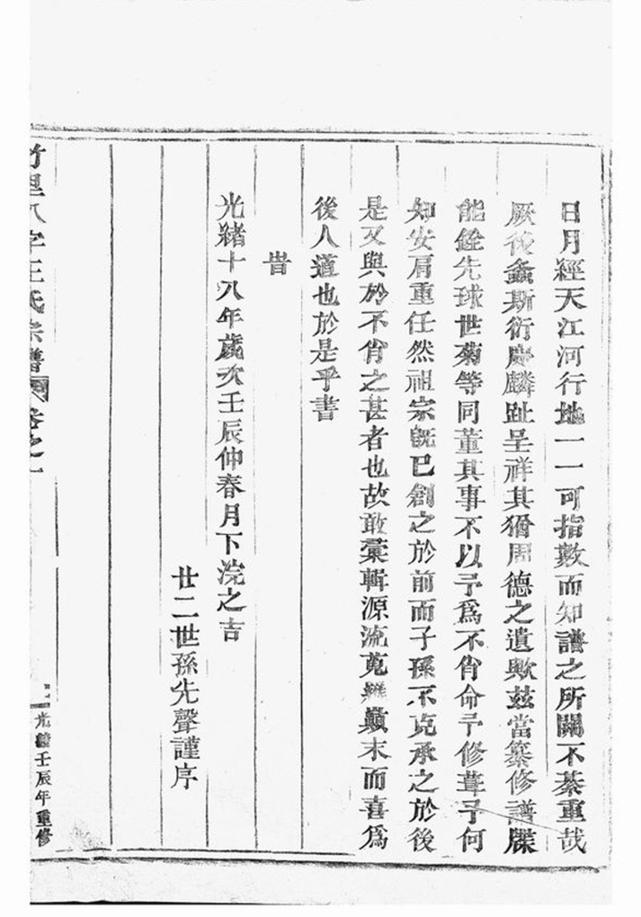 日月經天江河行地一一可指數而知譜之所關不綦重哉
厥後螽斯衍慶麟趾呈祥其猶周德之遺歟兹當纂修譜牒
能銓先球世菊等同董其事不以予爲不肖命予修葺予何
如安肩重任然祖宗旣已創之於前而子孫不克承之於後
是又與於不肖之甚者也故敢彙輯源流蒐羅顚末而喜爲
後人道也於是乎書
旹
光緖十八年歲次壬辰仲春月下浣之吉
廿二世孫先聲謹序
竹里八字王氏宗譜 卷之一
光緖壬辰年重修